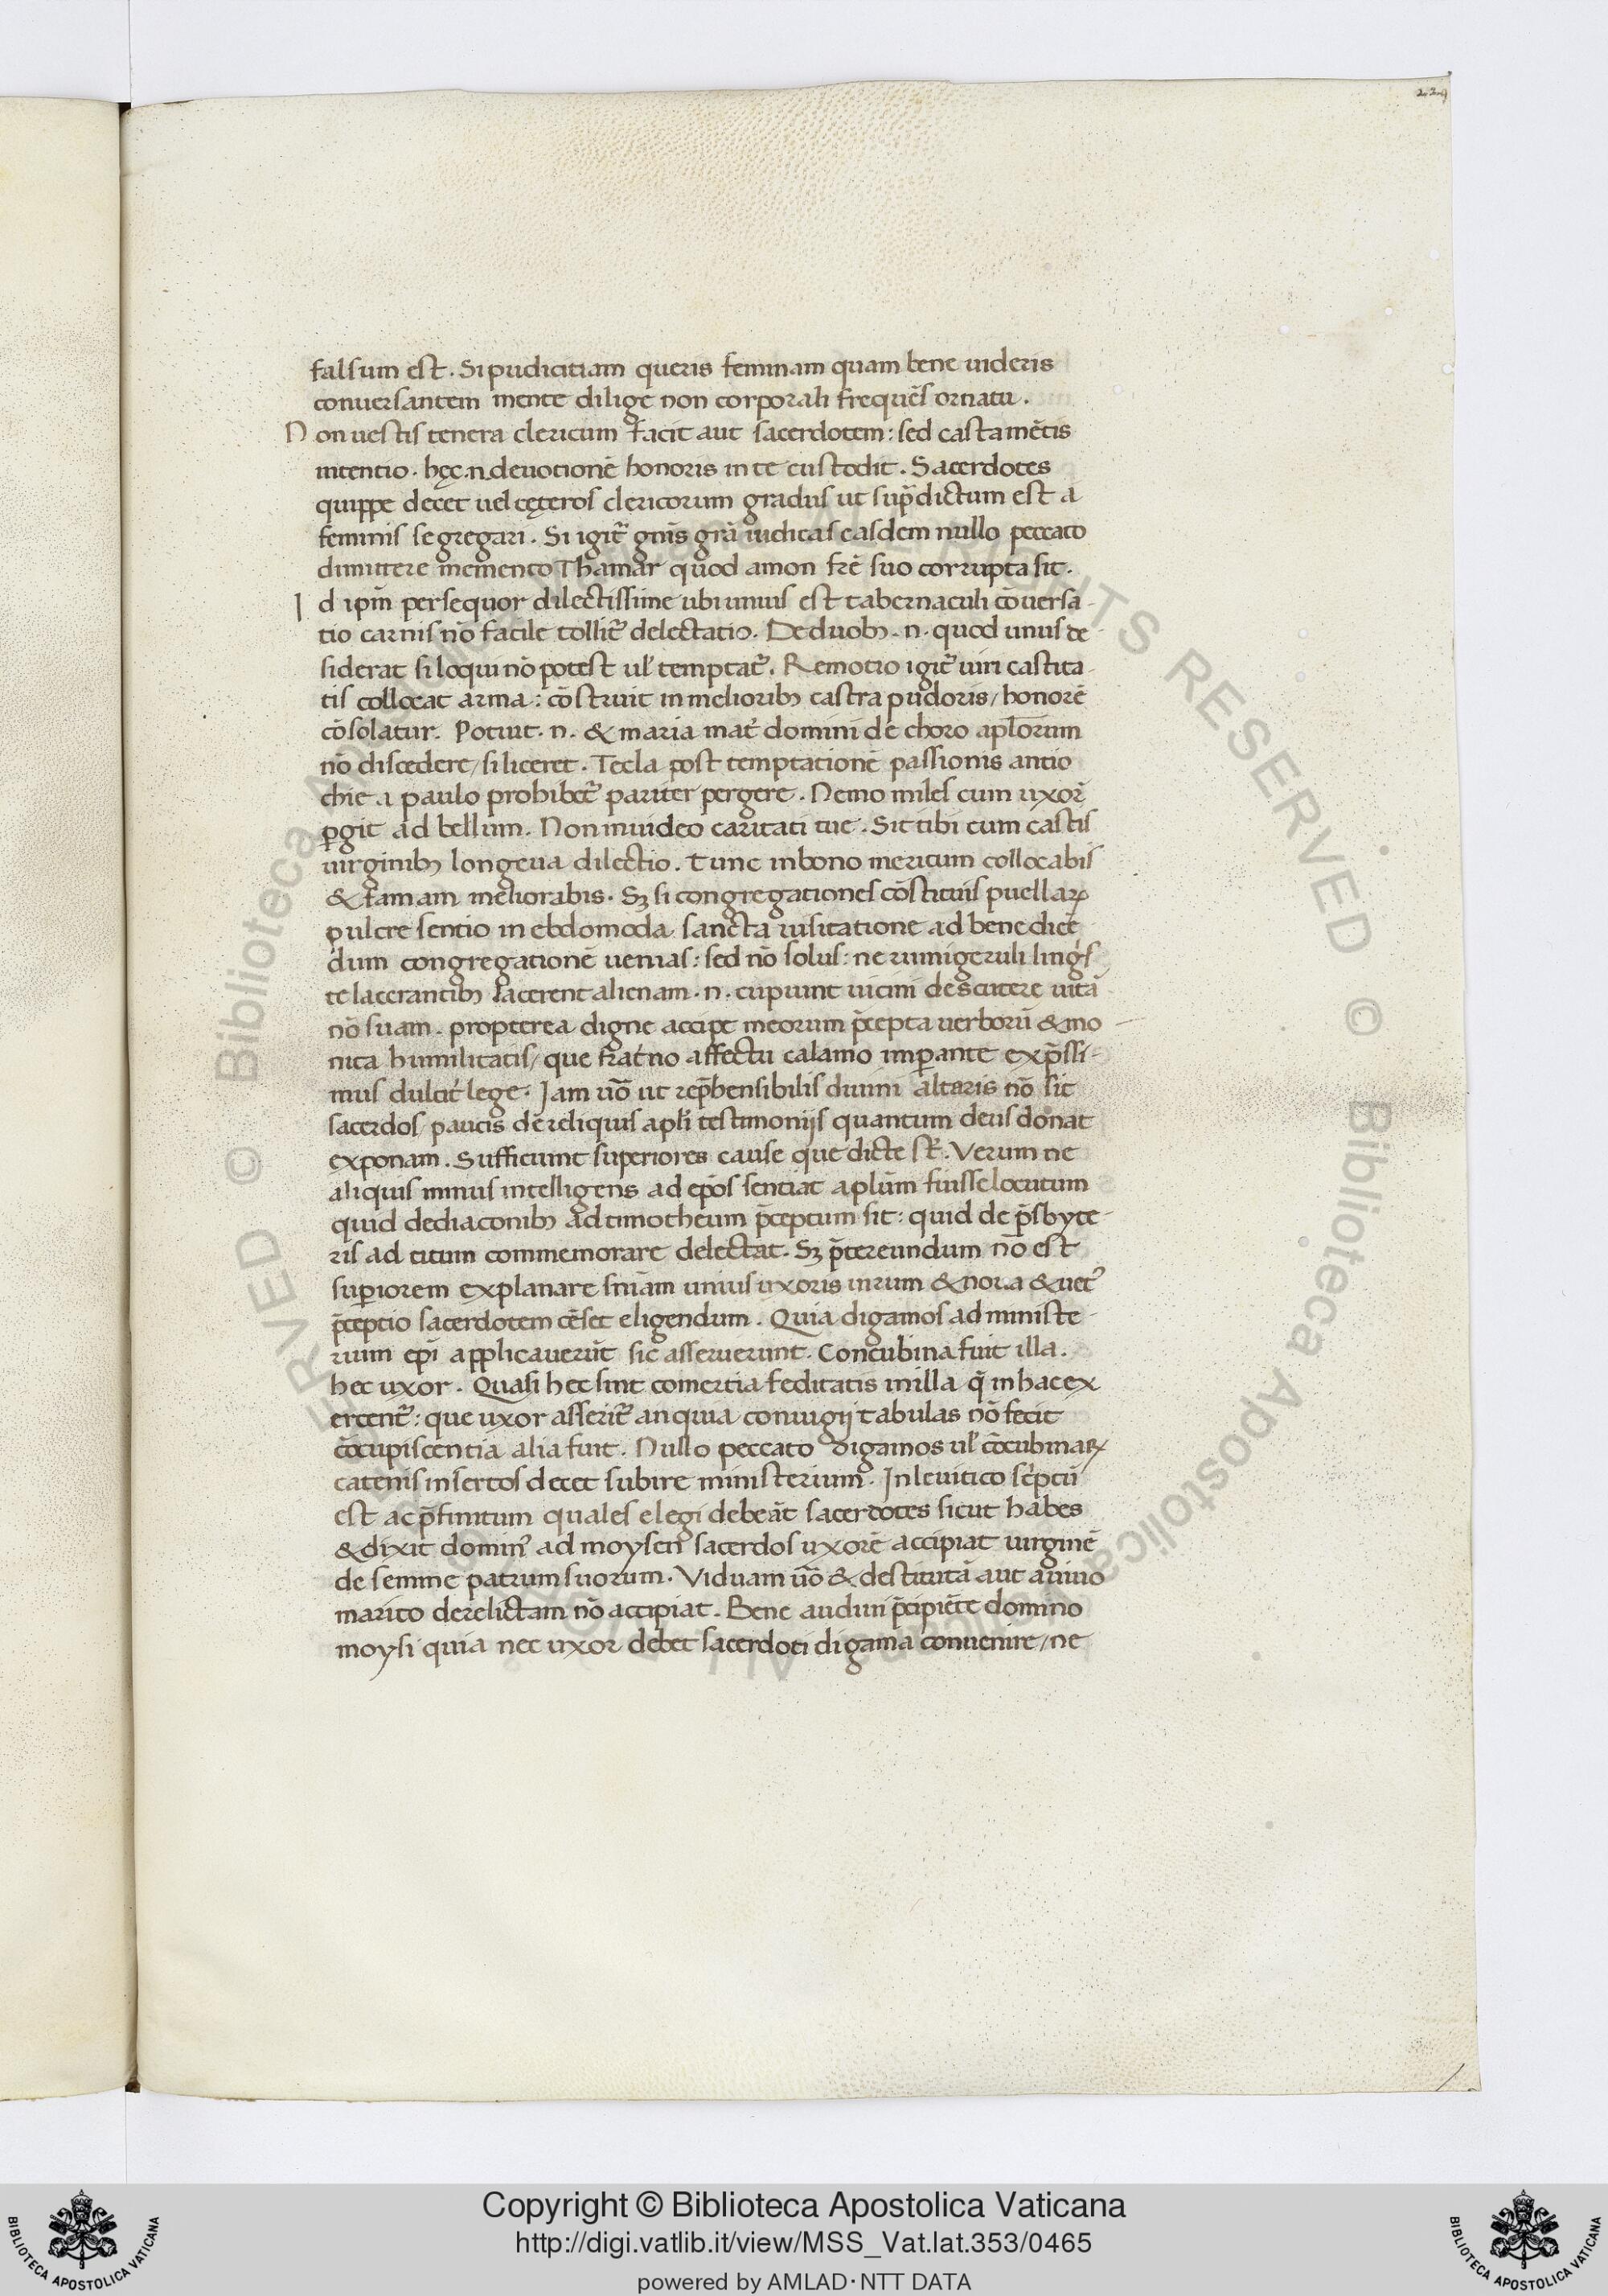 229
falsum est. Si pudicitiam queris feminam quam bene uideris
conuersantem mente dilige non corporali frequēs ornatu.
Non uestis tenera clericum facit aut sacerdotem: sed casta mētis
intentio. hęc .n. deuotionē honoris in te custodit. Sacerdotes
quippe decet uel cęteros clericorum gradus ut sup̄dictum est a
feminis segregari. Si igit᷑ gn̄is grā iudicas easdem nullo peccato
dimittere memento Thamar quod amon fr̄e suo corrupta sit.
Id ipm̄ persequor dilectissime ubi unius est tabernaculi cōuersa-
tio carnis nō facile tollit᷑ delectatio. De duobꝫ .n. quod unus de-
siderat si loqui nō potest ul̓ temptat᷑. Remotio igit᷑ uiri castita-
tis collocat arma: cōstruit in melioribꝫ castra pudoris/ honorē
cōsolatur. Potuit .n. & maria mat̓ domini de choro apl̄orum
nō discedere/ si liceret. Tecla post temptationē passionis antio
chie a paulo prohibet᷑ pariter pergere. Nemo miles cum uxor̄
ꝑgit ad bellum. Non inuideo caritati tue. Sit tibi cum castis
uirginibꝫ longeua dilectio. Tunc in bono meritum collocabis
& famam meliorabis. Sꝫ si congregationes cōstituis puellaꝝ
pulcre sentio in ebdomoda sancta uisitatione ad benedicē
dum congregationē uenias: sed nō solus: ne rumigeruli ling̓s
te lacerantibꝫ lacerent alienam .n. cupiunt uicini descutere uitā
nō suam. propterea digne accipe meorum p̄cepta uerborū & mo
nita humilitatis/ que frat̓no affectu calamo imꝑante exp̄ssi-
mus dulcit̓ lege. Iam uō ut rep̄hensibilis diuini altaris nō sit
sacerdos/ paucis de reliquis apl̓i testimonijs quantum deus donat
exponam. Sufficiunt superiores cause que dicte st̄. Verum ne
aliquis minus intelligens ad ep̄os sentiat aplūm fuisse locutum
quid de diaconibꝫ ad timotheum p̄ceptum sit: quid de p̄sbyte-
ris ad titum commemorare delectat. Sꝫ p̄tereundum nō est
suꝑiorem explanare sn̄iam unius uxoris uirum & noua & uet᷑
p̄ceptio sacerdotem cēset eligendum. Quia digamos ad ministe-
rium ep̄i applicauerūt sic asseruerunt. Concubina fuit illa.
hec uxor. Quasi hec sint comertia feditatis in illa q̄ in hac ex
ercent᷑: que uxor asserit᷑ an quia coniugij tabulas nō fecit
cōcupiscentia alia fuit. Nullo peccato digamos ul̓ cōcubinaꝝ
catenis insertos decet subire ministerium. In leuitico sc̓ptū
est ac p̄finitum quales elegi debeāt sacerdotes sicut habes
& dixit domin᷒ ad moysen sacerdos uxorē accipiat uirginē
de semine patrum suorum. Viduam uō & destitutā aut a uiuo
marito derelictam nō accipiat. Bene audiui p̄cipiēte domino
moysi quia nec uxor debet sacerdoti digama conuenire/ ne
© Biblioteca Apostolica Vaticana ALL RIGHTS RESERVED
Copyright © Biblioteca Apostolica Vaticana
http://digi.vatlib.it/view/MSS_Vat.lat.353/0465
powered by AMLAD·NTT DATA
BIBLIOTECA APOSTOLICA VATICANA
BIBLIOTECA APOSTOLICA VATICANA